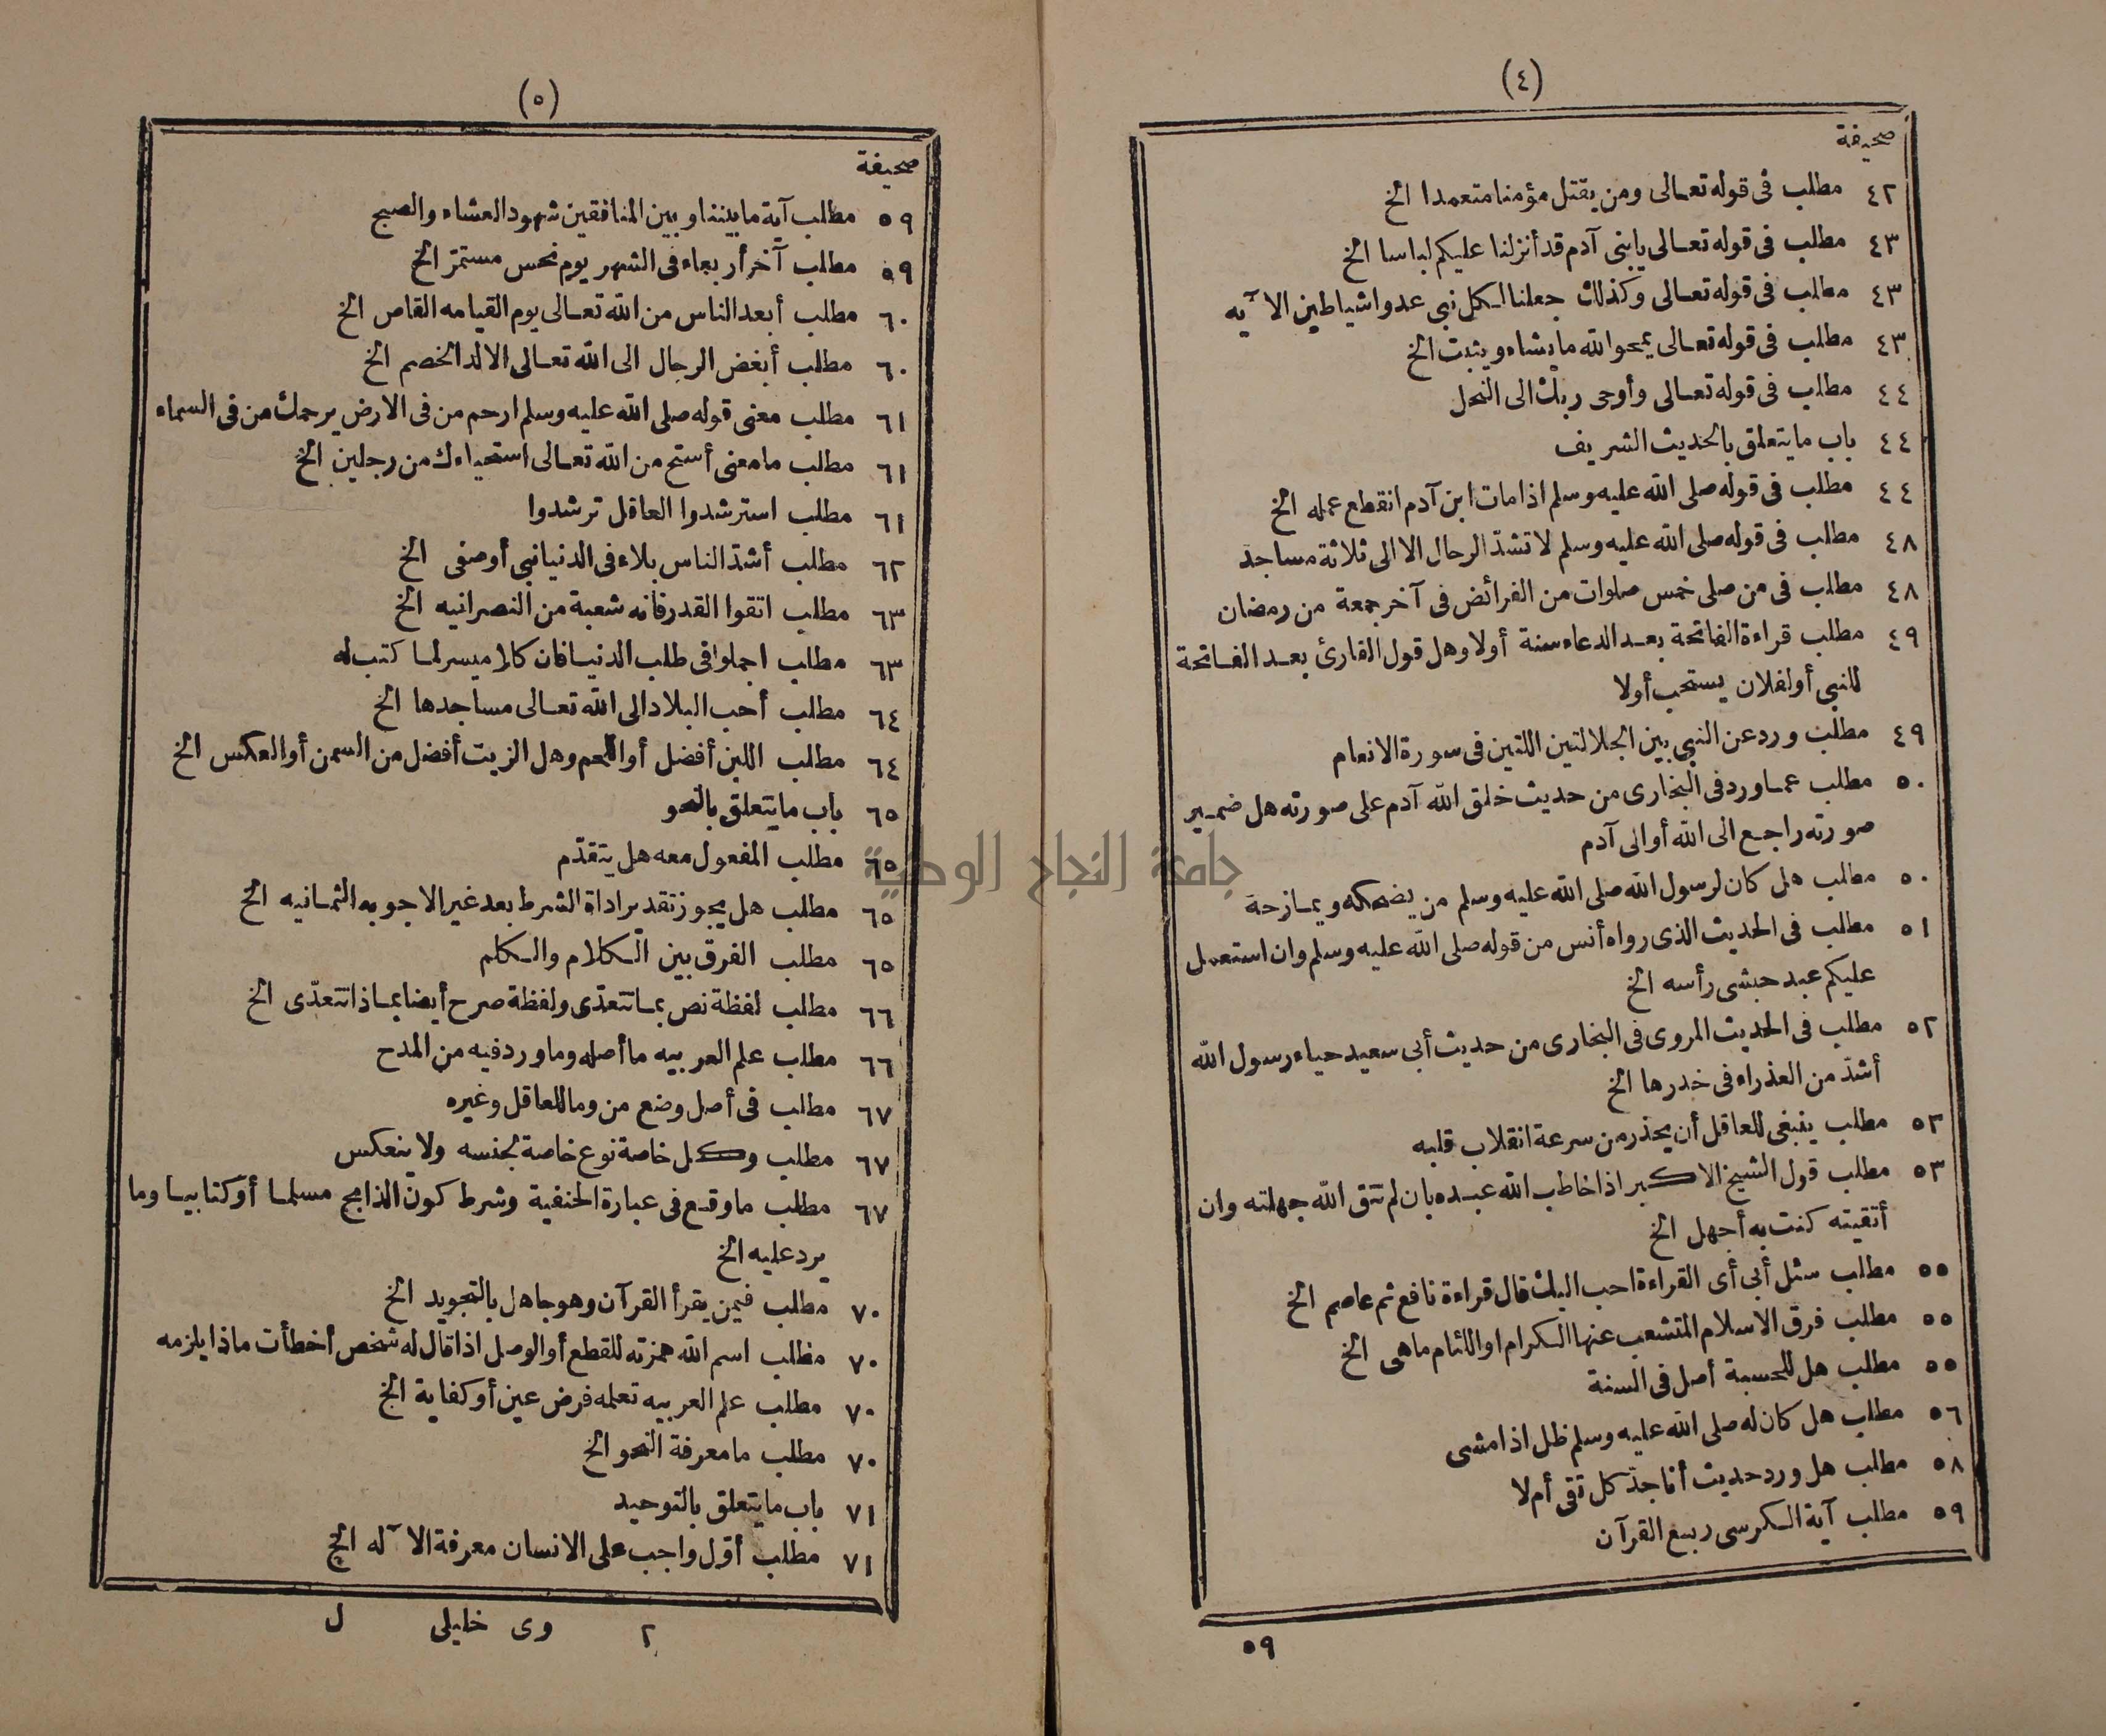 (٤)
صحيفة
٤٢ مطلب فى قوله تعالى ومن يقتل مؤمنا متعمدا الخ
٤٣ مطلب فى قوله تعالى يابنى آدم قد أنزلنا عليكم لباسا الخ
٤٣ مطلب فى قوله تعالى وكذلك جعلنا لكل نبى عدوا شياطين الآيه
٤٣ مطلب فى قوله تعالى يمحو الله مايشاء ويثبت الخ
٤٤ مطلب فى قوله تعالى وأوحى ربك الى النحل
٤٤ باب مايتعلق بالحديث الشريف
٤٤ مطلب فى قوله صلى الله عليه وسلم اذا مات ابن آدم انقطع عمله الخ
٤٨ مطلب فى قوله صلى الله عليه وسلم لا تشدّ الرحال الا الى ثلاثة مساجد
٤٨ مطلب فى من صلى خمس صلوات من الفرائض فى آخر جمعة من رمضان
٤٩ مطلب قراءة الفاتحة بعد الدعاء سنة أولا وهل قول القارئ بعد الفاتحة
للنبى أولفلان يستحب أولا
٤٩ مطلب ورد عن النبى بين الجلالتين اللتين فى سورة الانعام
٥٠ مطلب عماورد فى البخارى من حديث خلق الله آدم على صورته هل ضمير
صورته راجع الى الله أو الى آدم
٥٠ مطلب هل كان لرسول الله صلى الله عليه وسلم من يضحكه ويمازحة
٥١ مطلب فى الحديث الذى رواه أنس من قوله صلى الله عليه وسلم وان استعمل
عليكم عبد حبشى رأسه الخ
٥٢ مطلب فى الحديث المروى فى البخارى من حديث أبى سعيد حياء رسول الله
أشدّ من العذراء فى خدرها الخ
٥٣ مطلب ينبغى للعاقل أن يحذر من سرعة انقلاب قلبه
٥٣ مطلب قول الشيخ الاكبر اذا خاطب الله عبده بان لم تتق الله جهلته وان
أتقيته كنت به أجهل الخ
٥٥ مطلب سئل أبى أى القراءة احب اليك قال قراءة نافع ثم عاصم الخ
٥٥ مطلب فرق الاسلام المتشعب عنها الكرام او اللئام ماهى الخ
٥٥ مطلب هل للحسبة أصل فى السنة
٥٦ مطلب هل كان له صلى الله عليه وسلم ظل اذا مشى
٥٨ مطلب هل ورد حديث أنا جدّ كل تقى أم لا
٥٩ مطلب آية الكرسى ربع القرآن
٥٩
(٥)
صحيفة
٥٩ مطلب آية مابيننا وبين المنافقين شهود العشاء والصبح
٥٩ مطلب آخر أربعاء فى الشهر يوم نحس مستمرّ الخ
٦٠ مطلب أبعد الناس من الله تعالى يوم القيامه القاص الخ
٦٠ مطلب أبغض الرجال الى الله تعالى الالد الخصم الخ
٦١ مطلب معنى قوله صلى الله عليه وسلم ارحم من فى الارض يرحمك من فى السماء
٦١ مطلب مامعنى أستح من الله تعالى استحياءك من رجلين الخ
٦١ مطلب استرشدوا العاقل ترشدوا
٦٢ مطلب أشدّ الناس بلاء فى الدنيا نبى أوصفى الخ
٦٣ مطلب اتقوا القدر فانه شعبة من النصرانيه الخ
٦٣ مطلب اجملوا فى طلب الدنيا فان كلا ميسر لما كتب له
٦٤ مطلب أحب البلاد الى الله تعالى مساجدها الخ
٦٤ مطلب اللبن أفضل أو اللحم وهل الزيت أفضل من السمن أو العكس الخ
٦٥ باب مايتعلق بالنحو
٦٥ مطلب المفعول معه هل يتقدّم
٦٥ مطلب هل يجوز تقدير اداة الشرط بعد غير الاجوبه الثمانيه الخ
٦٥ مطلب الفرق بين الكلام والكلم
٦٦ مطلب لفظة نص بماتتعدّى ولفظة صرح أيضا بماذا تتعدّى الخ
٦٦ مطلب علم العربيه ماأصله وماورد فيه من المدح
٦٧ مطلب فى أصل وضع من وما للعاقل وغيره
٦٧ مطلب وكل خاصة نوع خاصة لجنسه ولا ينعكس
٦٧ مطلب ماوقع فى عبارة الحنفية وشرط كون الذابح مسلما أوكتابيا وما
يرد عليه الخ
٧٠ مطلب فيمن يقرأ القرآن وهو جاهل بالتجويد الخ
٧٠ مطلب اسم الله همزته للقطع أو الوصل اذا قال له شخص أخطأت ماذا يلزمه
٧٠ مطلب علم العربيه تعلمه فرض عين أو كفاية الخ
٧٠ مطلب مامعرفة النحو الخ
٧١ باب مايتعلق بالتوحيد
٧١ مطلب أوّل واجب على الانسان معرفة الآله الخ
٢ وى خليلى ل
جامعة النجاح الوطنية